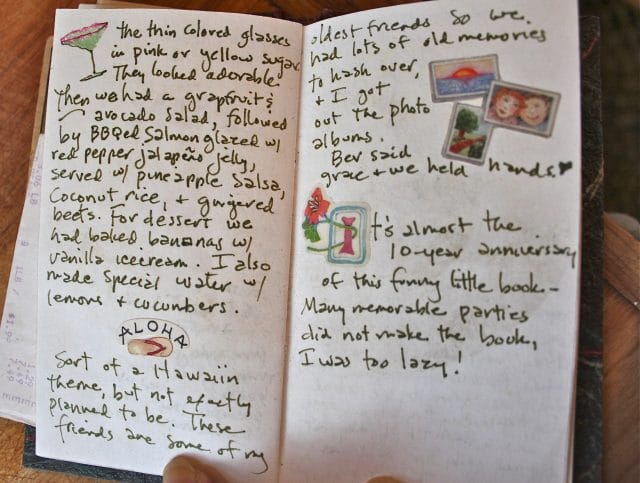 the thin colored glasses
in pink or yellow sugar.
They looked adorable.
Then we had a grapefruit &
avocado salad, followed
by BBQed Salmon glazed w/
red pepper jalapeño jelly,
served w/ pineapple salsa,
Coconut rice, & gingered
beets. For dessert we
had baked bananas w/
vanilla icecream. I also
made special water w/
lemons + cucumbers.
ALOHA
Sort of a Hawaiin
theme, but not exactly
planned to be. These
friends are some of my
oldest friends so we
had lots of old memories
to hash over,
+ I got
out the photo
albums.
Bev said
grace + we held hands.
It's almost the
10-year anniversary
of this funny little book -
Many memorable parties
did not make the book,
I was too lazy!